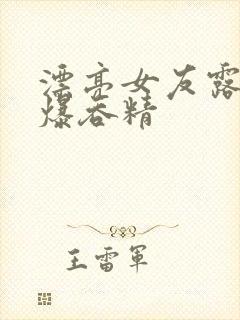 漂亮女友露
爆吞精
王雷军